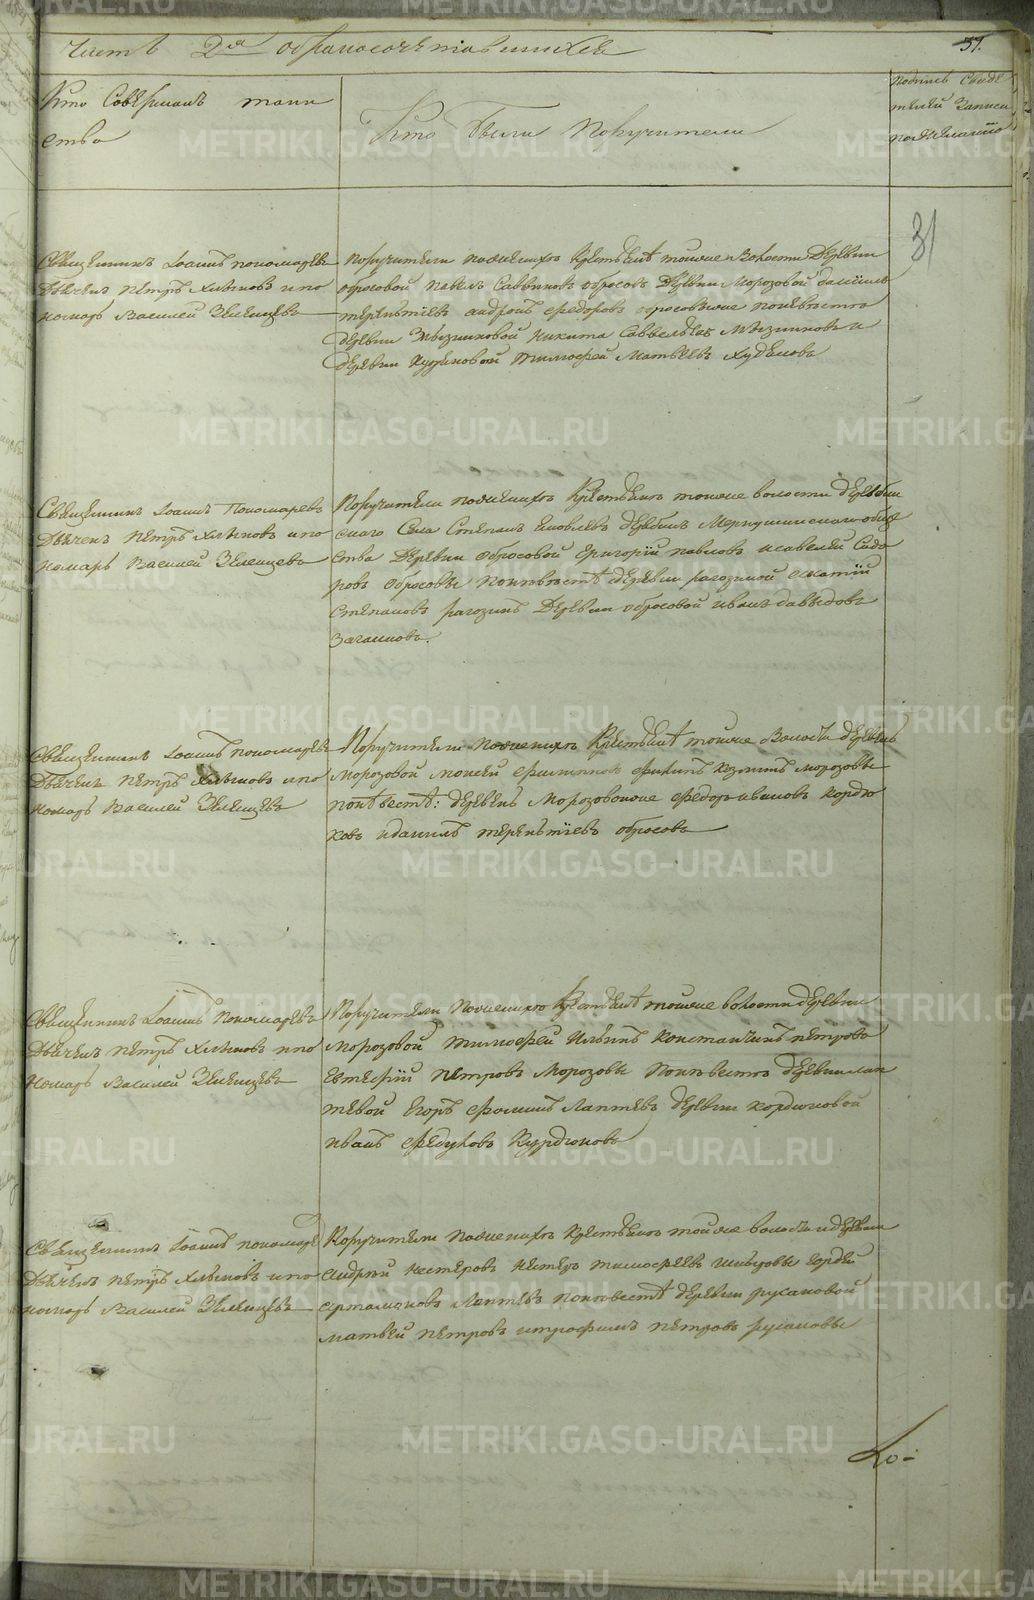 часть 2я обракосочетавшихся
31.
Кто Совершалъ таин
ство
Кто Были Поручители
подпись Свиде
телей Записи
по желанию
31
Священникъ Iоаннъ пономаревъ
Дьячекъ Петръ Хлыновъ и по
номарь Василей Зеленцовъ
Поручители по женихе Крестьяне тойже Волости Деревни
обросовой павелъ Саввиновъ обросовъ Деревни Морозовой данилъ
терентьевъ андрей федоровъ обросовы же поневесте
деревни никита Савельевъ и
деревни Худяковой тимофей Матвеевъ Худяковъ
Священникъ Iоаннъ Пономаревъ
Дьячекъ Петръ Хлыновъ и по
номарь Василей Зеленцовъ
Поручители по женихе Крестьяне тойже волости
скаго Села Степанъ Яковлевъ Меркушинскаго обще
ства Деревни обросовой Григорiй павловъ исавелей Сидо
ровъ обросовы поневесте деревни рагозиной
Степановъ рагозинъ Деревни обросовой иванъ давыдовъ
Загайновъ.
Священникъ Iоаннъ пономаревъ
Дьячекъ Петръ Хлыновъ и по
номарь Василей Зеленцовъ
Поручители по женихе Крестьяне тойже Волости деревень
Морозовой филипъ козминъ морозовы
поневесте: деревень Морозовойже федоръ ивановъ кордю
ковъ иданилъ терентiевъ обросовъ
Священникъ Iоаннъ Пономаревъ
Дьячекъ Петръ Хлыновъ и по
номарь Василей Зеленцовъ
Поручители по женихе Крестьяне тойже волости деревни
Морозовой тимофей Ильинъ константинъ петровъ
Евтефiй петровъ Морозовы поневесте деревни лап
тевой Егоръ фоминъ Лаптевъ деревни кордюковой
иванъ Федуловъ Курдюковъ
Священникъ Iоаннъ пономарев
Дьячекъ Петръ Хлыновъ и по
номарь Василей Зеленцовъ
Поручители по женихе Крестьяне тойже волости деревни
андрей нестеровъ нестеръ тимофеевъ Швецовы гордей
артамоновъ Лаптевъ поневесте деревни русаковой
матвей петровъ итрофимъ петровъ русаковы
METRIKI.GASO-URAL.RU